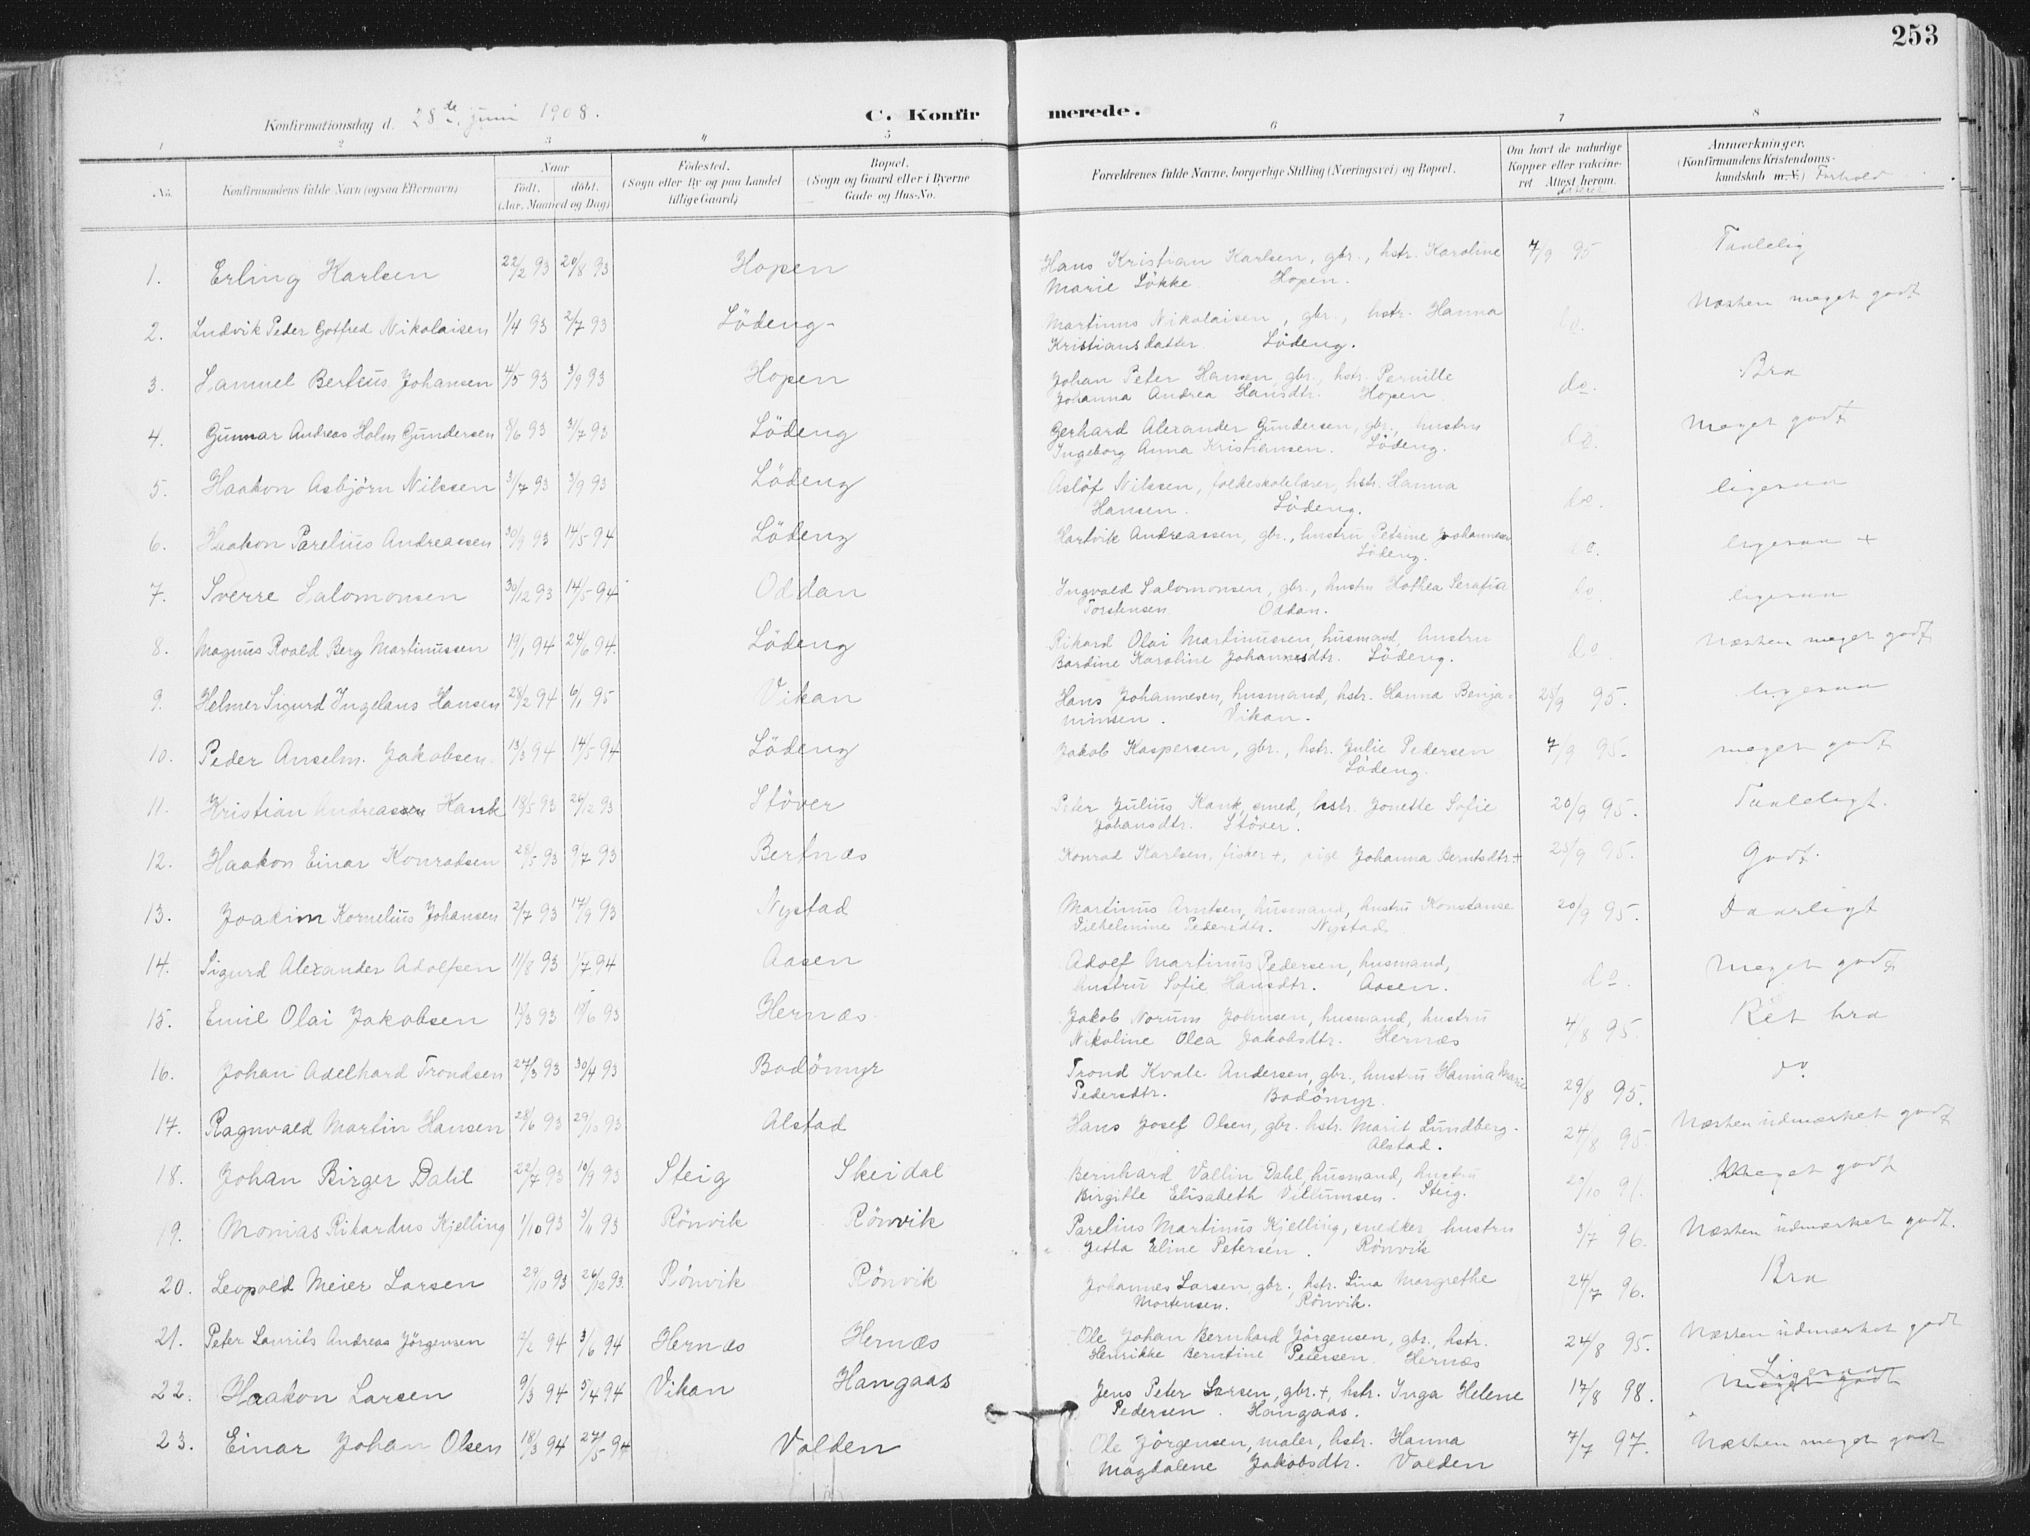 253
Konfirmationsdag d. 28de juni 1908.
C. Konfirmerede.
1 2 3 4 5 6 7 8
No. Konfirmandens fulde Navn (ogsaa Efternavn) Naar Født. døbt. (Aar, Maaned og Dag) Fødested. (Sogn eller By og paa Landet tillige Gaard) Bopæl. (Sogn og Gaard eller i Byerne Gade og Hus-No. Forældrenes fulde Navne, borgerlige Stilling (Næringsvei) og Bopæl. Om havt de naturlige Kopper eller vakcineret. Attest herom. dateret Anmærkninger. (Konfirmandens Kristendomskundskab m. V.) Forhold
1. Erling Karlsen 22/2 93 20/8 93 Hopen Hans Kristian Karlsen, gbr., hstr. Karoline 7/9 95 Taalelig
Marie Løkke Hopen.
2. Ludvik Peder Gotfred Nikolaisen 1/4 93 2/7 93 Lödeng Martinus Nikolaisen, gbr., hstr. Hanna do. Næsten meget godt
Kristiansdatter Lödeng.
3. Samuel Berteus Johansen 4/5 93 3/9 93 Hopen Johan Peter Hansen, gbr., hstr. Pernille do. Bra
Johanna Andrea Hansdtr. Hopen
4. Gunnar Andreas Holm Gundersen 8/6 93 31/7 93 Lödeng Gerhard Alexander Gundersen, gbr., hustru do. Meget godt
Ingeborg Anna Kristiansen. Lödeng.
5. Haakon Asbjörn Nilssen 3/7 93 3/9 93 Lödeng Aslöf Nilssen, folkeskolelærer, hstr. Hanna do. ligesaa
Hansen. Lödeng.
6. Haakon Parelius Andreassen 30/9 93 14/5 94 Lödeng Hartvik Andreassen, gbr., hustru Petrine Johannesen do. ligesaa +
Lödeng.
7. Sverre Salomonsen 30/12 93 14/5 94 Oddan Ingvald Salomonsen, gbr., hustru Hothea Serafia do. ligesaa
Torstensen Oddan.
8. Magnus Roald Berg Martinussen 19/1 94 24/6 94. Lödeng Rikard Olai Martinussen, husmand, hustru do. Næsten meget godt
Bardine Karoline Johannesdtr. Lödeng.
9. Helmer Sigurd Ingelaus Hansen 28/2 94 6/1 95 Vikan Hans Johannesen, husmand, hstr. Hanna Benja- 25/9 95. ligesaa
minsen. Vikan.
10. Peder Anselm Jakobsen 13/3 94 14/5 94 Lödeng Jakob Kaspersen, gbr., hstr. Julie Pedersen 7/9 95. meget godt
Lödeng.
11. Kristian Andreassen Hank 18/5 93 26/12 93 Støver Peter Julius Kank, smed, hstr. Jonette Sofie 20/9 95. Taaleligt.
Johansdtr. Støver.
12. Haakon Einar Konradsen 28/5 93 9/7 93 Bertnæs Konrad Karlsen, fisker +, pige Johanna Berntsdtr + 25/9 95. Godt.
13. Joakim Kornelius Johansen 2/7 93 17/9 93 Nystad Martinus Arntsen, husmand, hustru Konstanse 20/9 95. Daarligt
Vilhelmine Pedersdtr. Nystad
14. Sigurd Alexander Adolfsen 11/8 93 1/7 94 Aasen Adolf Martinus Pedersen, husmand, do. Meget godt
hustru Sofie Hansdtr. Aasen.
15. Emil Olai Jakobsen 14/3 93 18/6 93 Hernæs Jakob Norum Johnsen, husmand, hustru 4/8 95. Ret bra
Nikoline Olea Jakobsdtr. Hernæs
16. Johan Adelhard Trondsen 27/3 93 30/4 93 Bodömyr Trond Kvale Andersen, gbr., hustru Hanna Marie 29/8 95. do.
Pedersdtr. Bodömyr.
17. Ragnvald Martin Hansen 28/6 93 29/10 93 Alstad Hans Josef Olsen, gbr. hstr. Marit Lundberg. 24/8 95 Næsten udmerket godt
Alstad.
18. Johan Birger Dahl 22/7 93 10/9 93 Steig Skeidal Bernhard Vallin Dahl, husmand, hustru Meget godt
Birgitte Elisabeth Villumsen. Steig.
19. Monias Rikardus Kjelling 1/10 93 5/11 93 Rönvik Rönvik Parelius Martinus Kjelling, snedker, hustru 3/7 96. Næsten udmærket godt.
Jetta Eline Petersen. Rönvik
20. Leopold Meier Larsen 29/10 93 26/12 93. Rönvik Rönvik Johannes Larsen, gbr., hstr. Lina Margrethe 24/7 96. Bra
Mortensen. Rönvik.
21. Peter Laurits Andreas Jörgensen 2/2 94 3/6 94 Hernæs Hernæs Ole Johan Bernhard Jörgensen, gbr., hstr. 24/8 95. Næsten udmærket godt
Henrikke Berntine Petersen. Hernæs
22. Haakon Larsen 9/3 94 5/4 94 Vikan Hangaas Jens Peter Larsen, gbr. +, hstr. Inga Helene 17/8 98. Ligesaa
Pedersen. Hangaas. Meget godt
23. Einar Johan Olsen 18/3 94 27/5 94 Valden Ole Jörgensen, maler, hstr. Hanna 7/7 97. Næsten meget godt
Magdalene Jakobsdtr. Valden